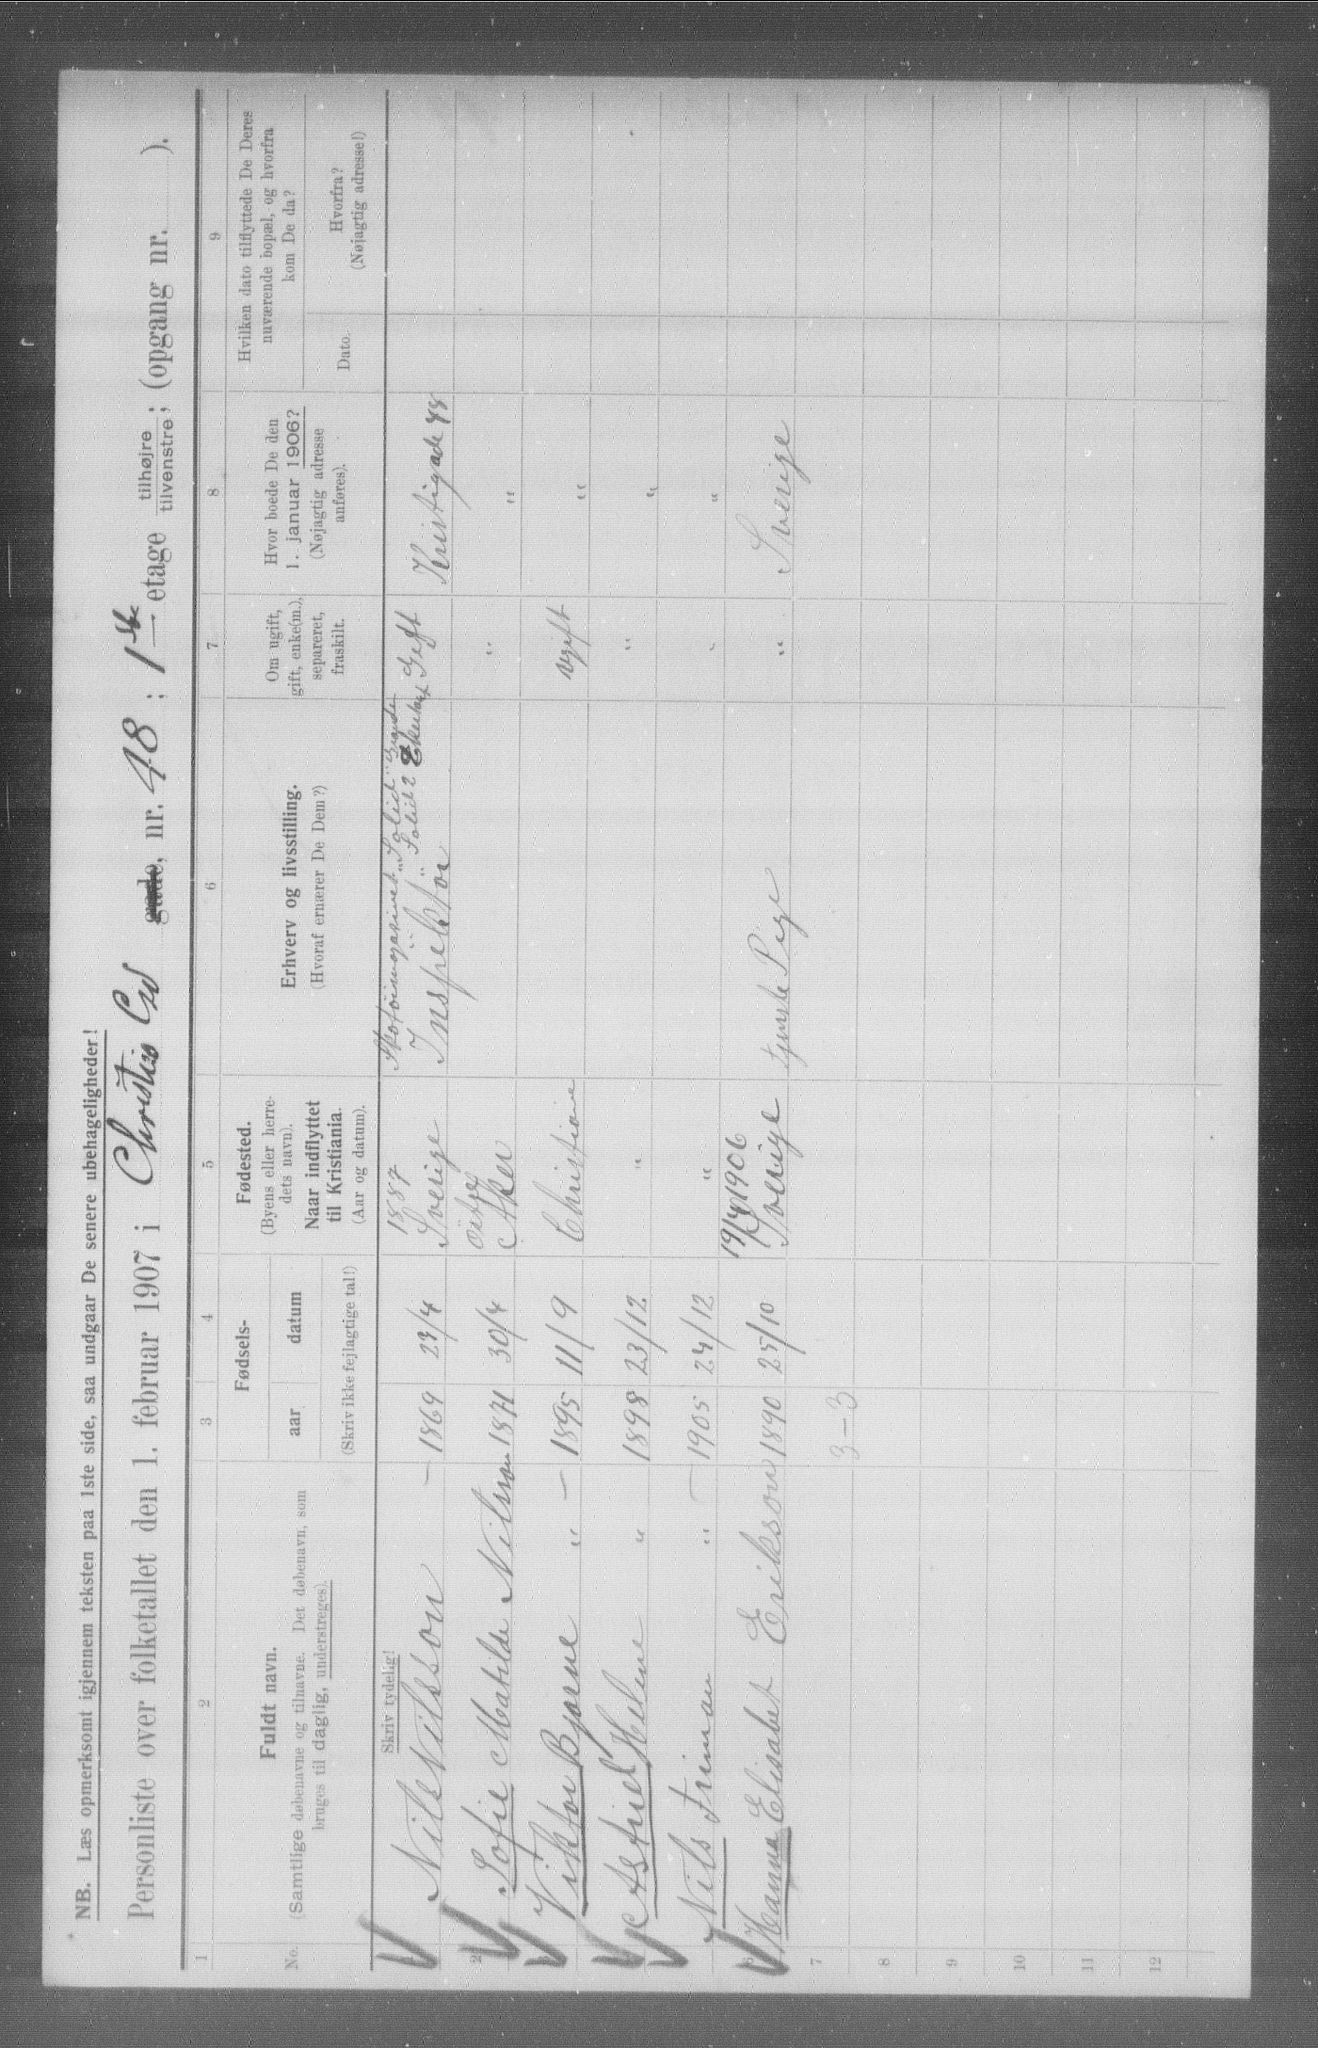 NB. Læs opmerksomt igjennem teksten paa 1ste side, saa undgaar De senere ubehageligheder!
Personliste over folketallet den 1. februar 1907 i Christies gade, nr. 48 ; 1ste etage tilhøjre tilvenstre; (opgang nr. ).
1 2 3 4 5 6 7 8 9
No.
Fuldt navn.
(Samtlige døbenavne og tilnavne. Det døbenavn, som
bruges til daglig, understreges).
Fødsels-
aar datum
(Skriv ikke fejlagtige tal!)
Fødested.
(Byens eller herre-
dets navn).
Naar indflyttet
til Kristiania.
(Aar og datum).
Erhverv og livsstilling.
(Hvoraf ernærer De Dem?)
Om ugift,
gift, enke(m.),
separeret,
fraskilt.
Hvor boede De den
1. januar 1906?
(Nøjagtig adresse
anføres).
Hvilken dato tilflyttede De Deres
nuværende bopæl, og hvorfra
kom De da?
Dato.
Hvorfra?
(Nøjagtig adresse!)
Skriv tydelig!
Skotøimagasinet "Solid"
Nils Nilsson — 1869 23/4 1887 Sverige Inspektør "Solid" Gift Kristigade 48
2 Sofie Mathilde Nilsson 1871 30/4 Aker " "
3 Viktor Bjarne " — 1895 11/9 Christiania ugift "
Astrid Helene " 1898 23/12 " " "
Nils Friman " — 1905 24/12 " " "
6 Hanna Elisabet Erikson 1890 25/10 19/4 1906 Sverige tjeneste Pige " Sverige
7 3-3
8
9
10
11
12